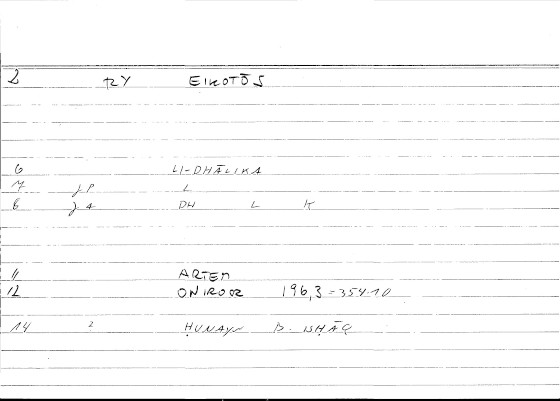 2 RY EIKOTŌS
6 LI-DHĀLIKA
7 JP L
8 J4 DH L K
11 ARTEM
12 ONIROCR 196,3 = 354.10
14 2 ḤUNAYN B. ISḤĀQ